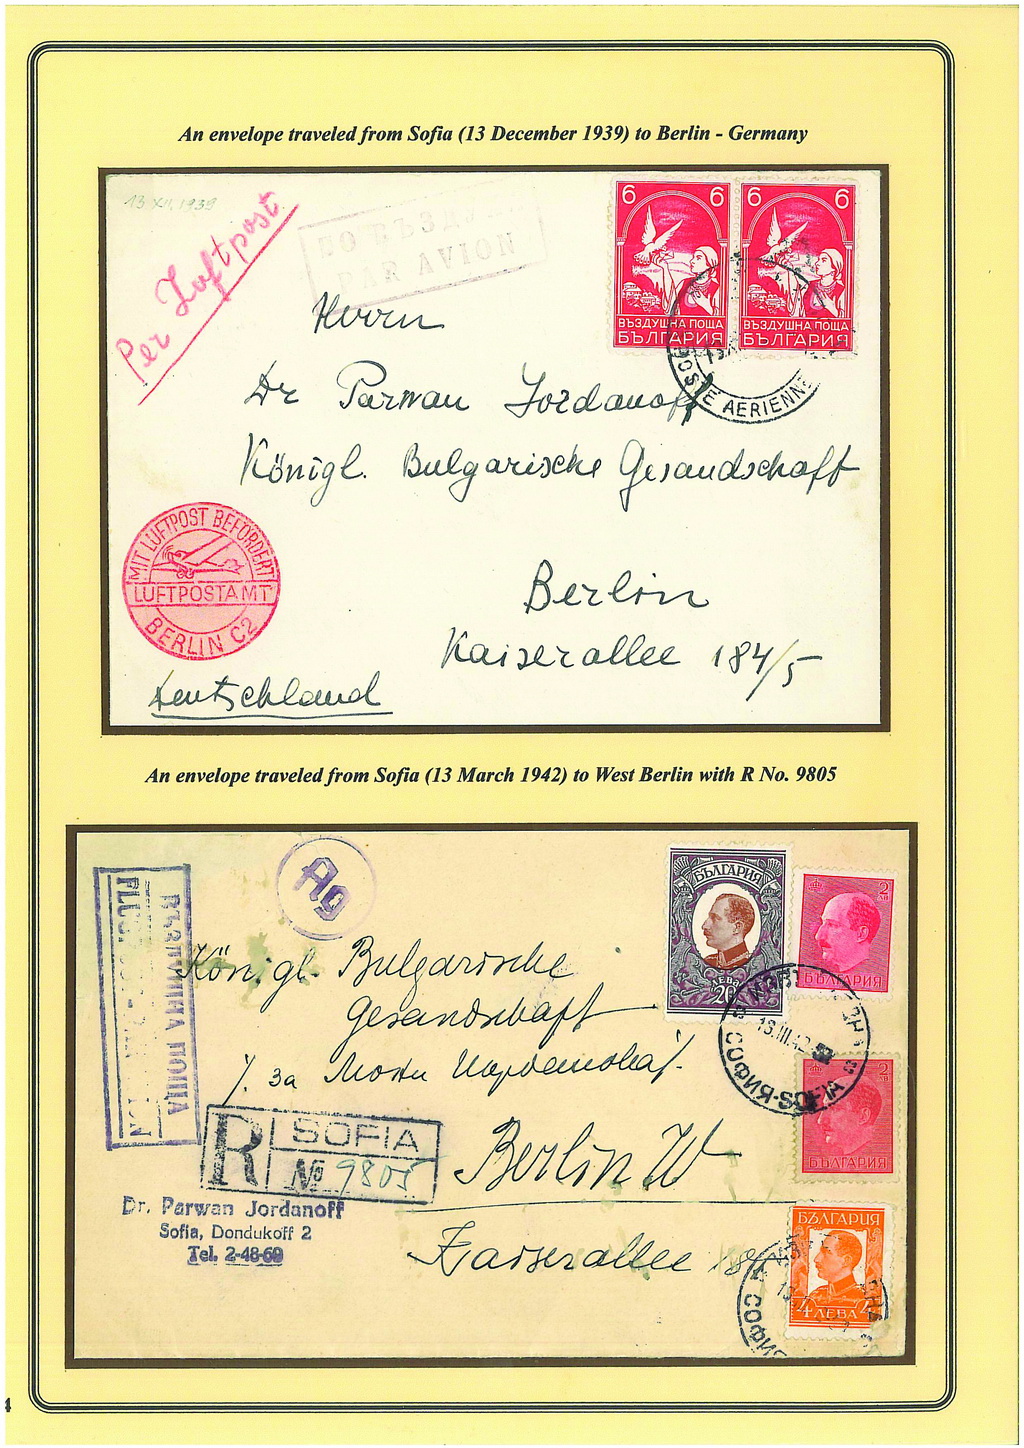 An envelope traveled from Sofia (13 December 1939) to Berlin - Germany
13 XII, 1939
Per Luftpost
ПО ВЪЗДУ
PAR AVION
6 6 6 6
ВЪЗДУШНА ПОЩА ВЪЗДУШНА ПОЩА
БЪЛГАРИЯ БЪЛГАРИЯ
POSTE AERIENNE
Herrn
Dr Parwan Jordanoff
Königl. Bulgarische Gesandschaft
MIT LUFTPOST BEFÖRDERT
LUFTPOSTAMT
BERLIN C2
Berlin
Kaiserallee 184/5
Deutschland
An envelope traveled from Sofia (13 March 1942) to West Berlin with R No. 9805
Ag
ВЪЗДУШНА ПОЩА
БЪЛГАРИЯ
ЛЕВА
20
2
ЛВ
БЪЛГАРИЯ
Königl. Bulgarische
Gesandschaft
/. за
13.III.42
СОФИЯ-SOFIA
2
ЛВ
БЪЛГАРИЯ
R SOFIA
№ 9805
Berlin W
Dr. Parwan Jordanoff
Sofia, Dondukoff 2
Tel. 2-48-69
Kaiserallee
БЪЛГАРИЯ
4 ЛЕВА 4
СОФИЯ
4